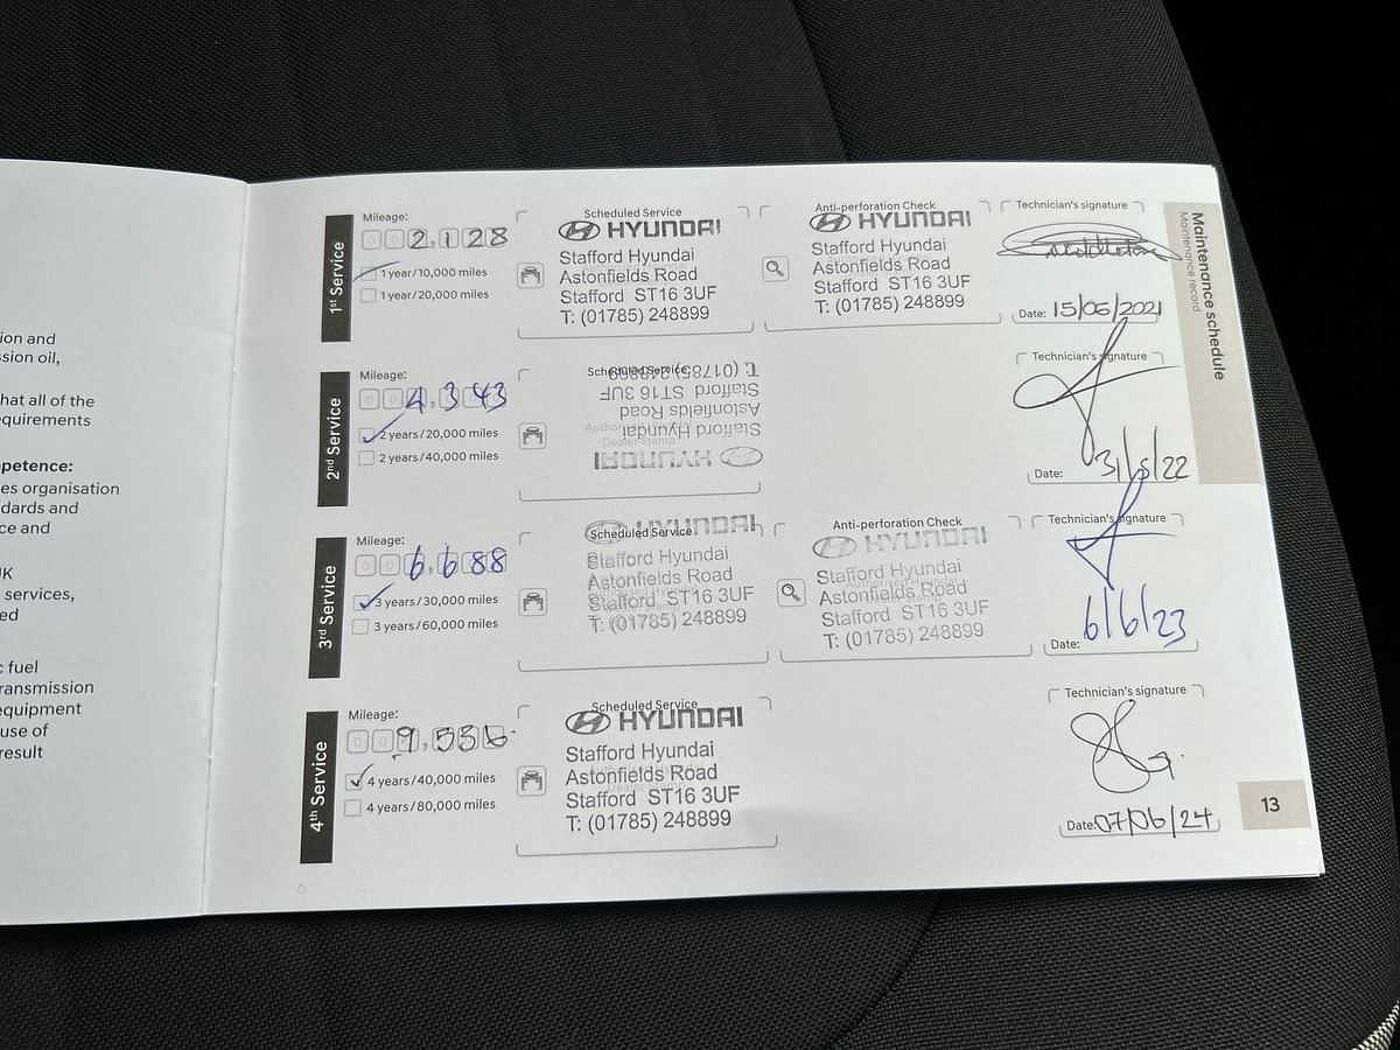 ion and
sion oil,
hat all of the
equirements
petence:
es organisation
dards and
ce and
K
services,
ed
c fuel
ransmission
equipment
use of
result
Maintenance schedule
Maintenance record
1st Service
Mileage:
002,128
1 year/10,000 miles
1 year/20,000 miles
Scheduled Service
HYUNDAI
Stafford Hyundai
Astonfields Road
Stafford ST16 3UF
T: (01785) 248899
Anti-perforation Check
HYUNDAI
Stafford Hyundai
Astonfields Road
Stafford ST16 3UF
T: (01785) 248899
Technician's signature
Date: 15/06/2021
2nd Service
Mileage:
004,343
2 years/20,000 miles
2 years/40,000 miles
Scheduled Service
HYUNDAI
Stafford Hyundai
Astonfields Road
Stafford ST16 3UF
T: (01785) 248899
Technician's signature
Date: 31/5/22
3rd Service
Mileage:
006,688
3 years/30,000 miles
3 years/60,000 miles
Scheduled Service
HYUNDAI
Stafford Hyundai
Astonfields Road
Stafford ST16 3UF
T: (01785) 248899
Anti-perforation Check
HYUNDAI
Stafford Hyundai
Astonfields Road
Stafford ST16 3UF
T: (01785) 248899
Technician's signature
Date: 6/6/23
4th Service
Mileage:
4 years/40,000 miles
4 years/80,000 miles
Scheduled Service
HYUNDAI
Stafford Hyundai
Astonfields Road
Stafford ST16 3UF
T: (01785) 248899
Technician's signature
Date: 07/06/24
13